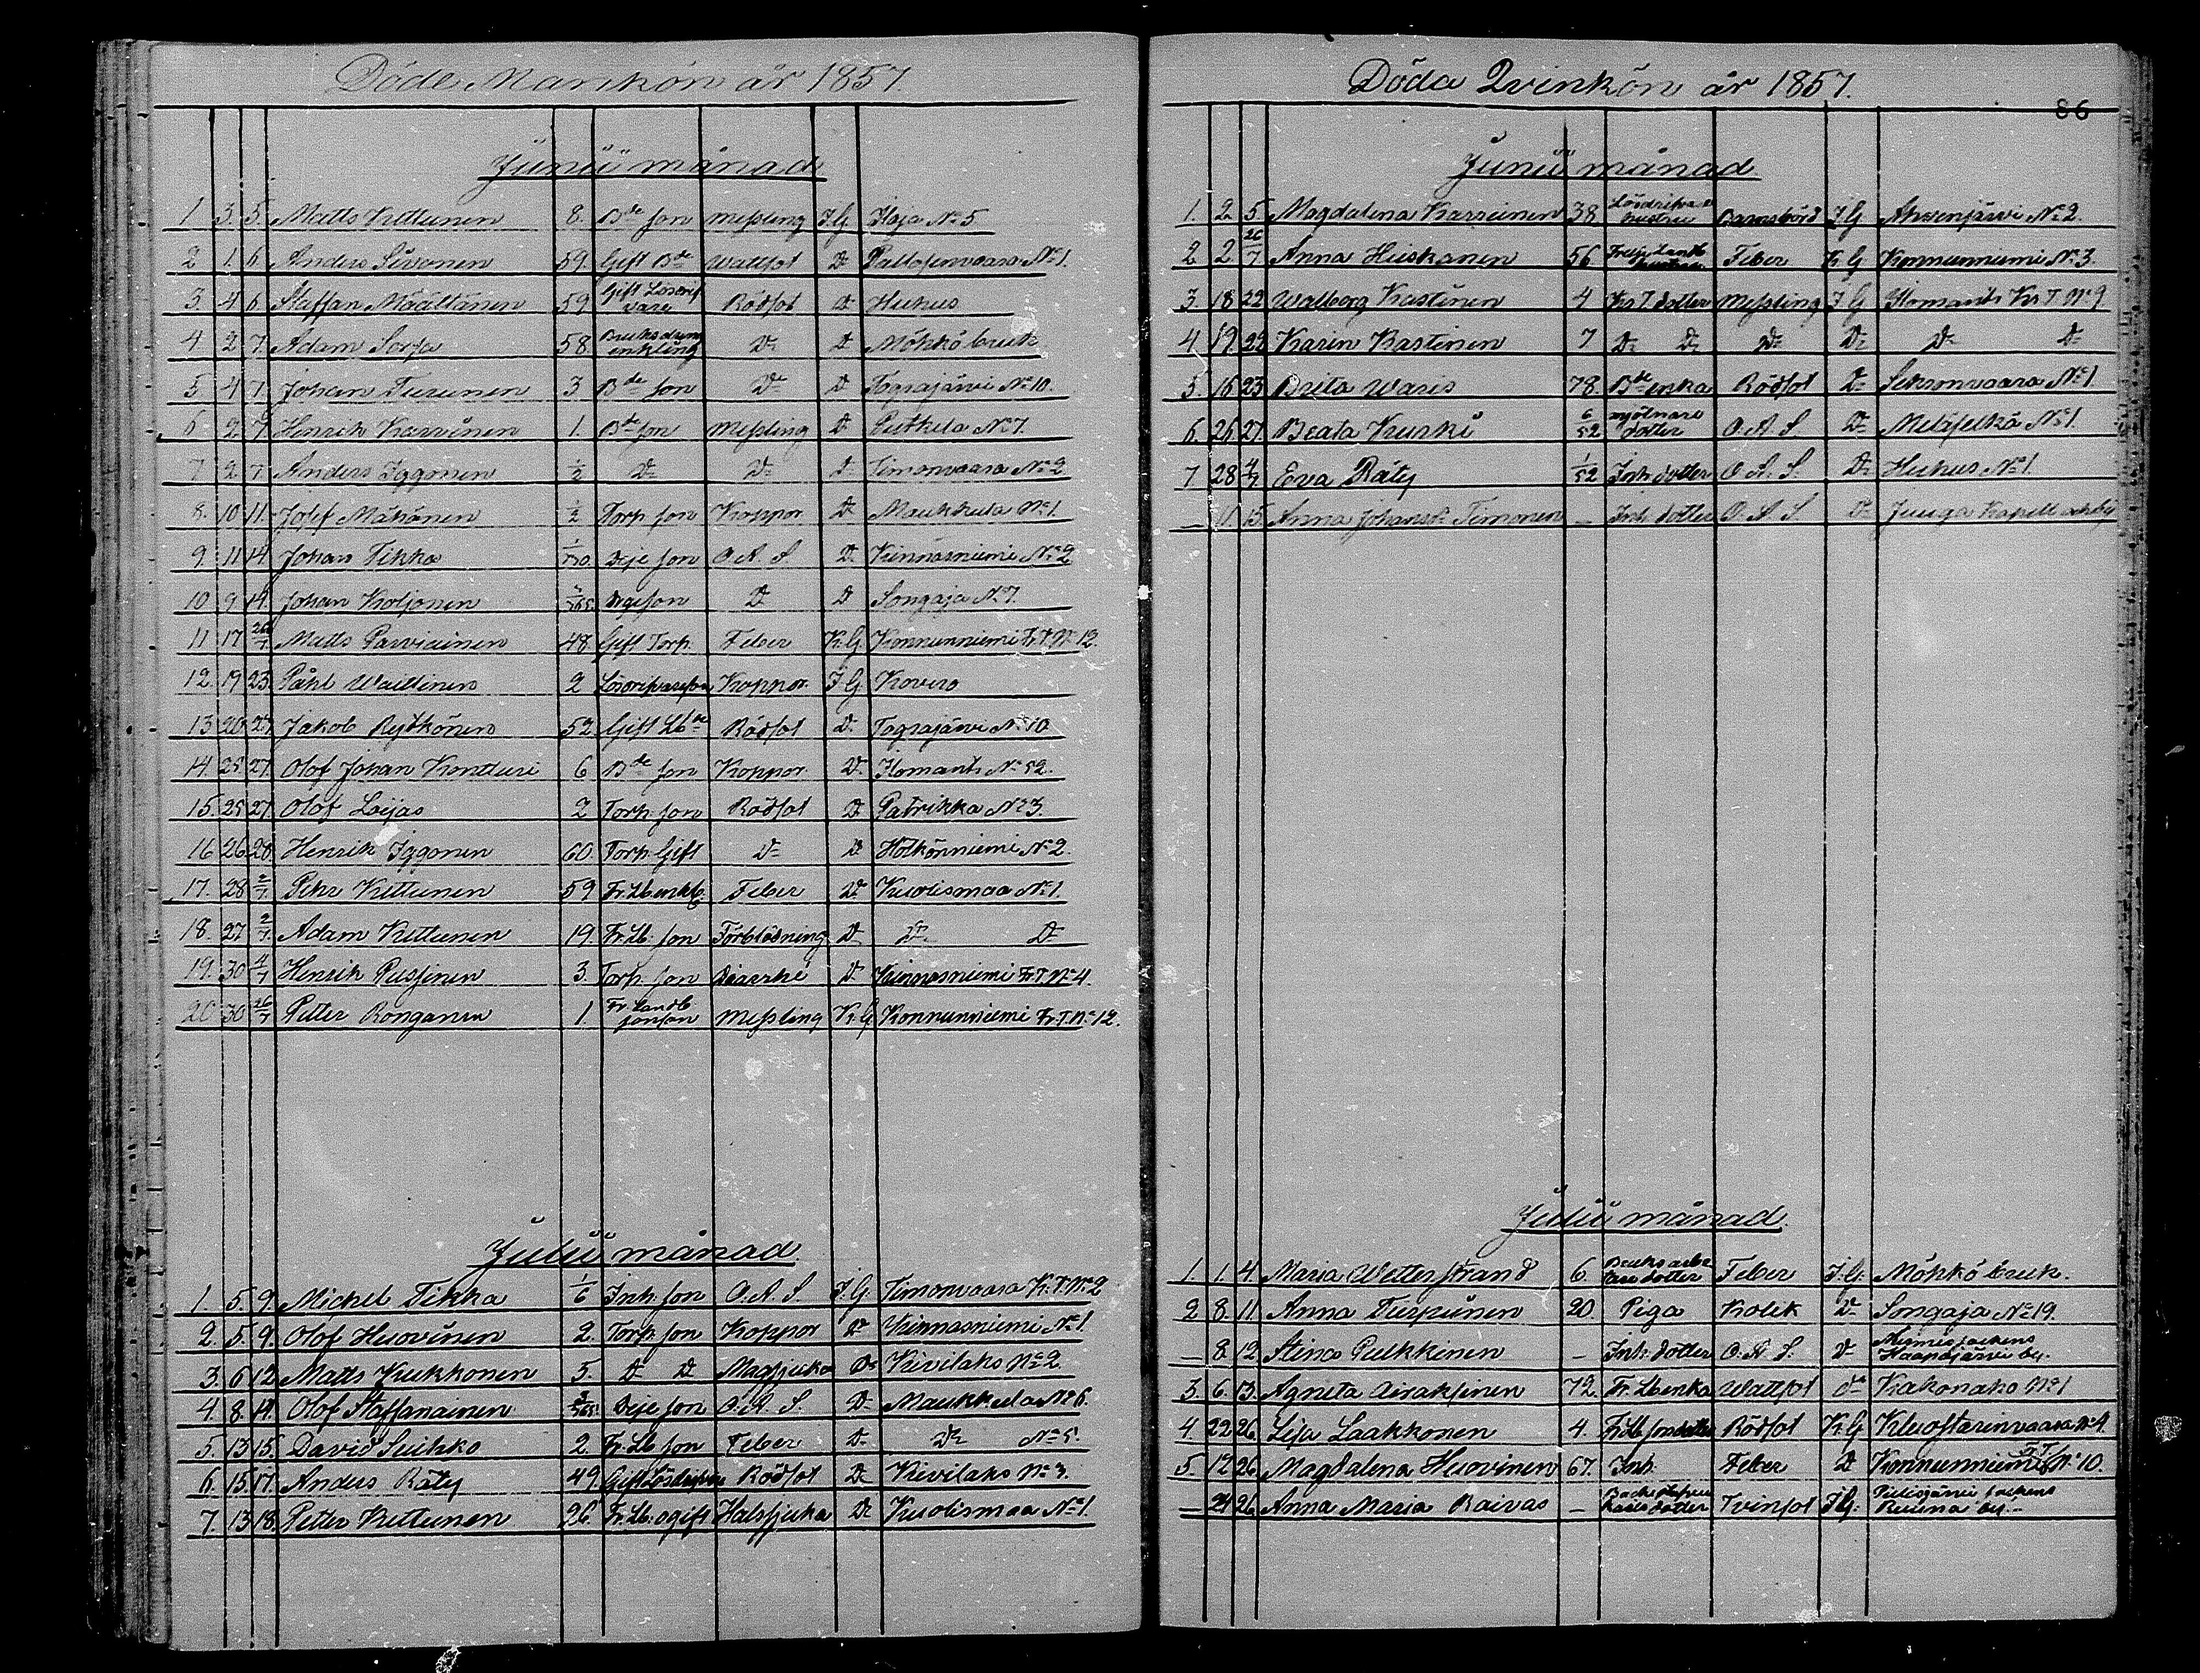 Döde Mankön år 1857.
Junii månad
1 3. 5. Matts Kuttunen 8. Bde son Messling I G Ilaja No 5
2 1. 6. Anders Sivonen 59. Gift Bde Wattsot Do Pallosenvaara No 1.
3. 4 6 Staffan Määttänen 59. Gift Lösdrifvare Rödsot Do Huhus
4 2 7. Adam Sorsa 58 Bruksdreng enkling Do Do Möhkö bruk
5 4 7. Johan Turunen 3 Bde son Do Do Tograjärvi No 10.
6 2. 7. Henrik Karvinen 1. Bde son Messling Do Putkela No 7.
7 2 7 Anders Iggonen 1/2 Do Do Do Timonvaara No 2
8. 10 11. Josef Mähönen 1/2 Torp. son Koppor Do Maukkula No 1.
9 11 14. Johan Tikka Deje son O. A. S. Do Kinnasniemi No 2
10 9. 14. Johan Koljonen Deje son Do Do Songaja No 7.
11 17 26/7 Matts Parviainen 48 Gift Torp. Feber K. G Konnunniemi Fr. T. No 12.
12. 19 23. Påhl Wallinen 2 Lösdrifvareson Koppor. I G Kovero
13. 20 27. Jakob Rytkönen 52 Gift Lbde Rödsot Do Tograjärvi No 10
14. 25. 27. Olof Johan Kontturi 6 Bde son Koppor. Do Ilomants No 52.
15. 25. 27. Olof Leijas 2 Torp. son Rödsot Do Patrikka No 3.
16 26 28. Henrik Iggonen 60. Torp. Gift Do Do Hölkönniemi No 2.
17. 28. 2/7 Pehr Kuttunen 59 Fr. Lb enkl. Feber Do Kuolismaa No 1.
18. 27 2/7. Adam Kuttunen 19. Fr. Lb. son Förblödning Do Do Do
19. 30 4/7 Henrik Pussinen 3. Torp. son Diarrhé Do Kinnasniemi Fr. T. No 4.
20 30 26/7 Petter Ronganen 1. Fr. Landb. sonson Messling K. G Konnunniemi Fr. T. No 12.
Julii månad
1. 5. 9. Michel Tikka 1/6 Inh. son O. A. S. I. G. Timonvaara Kr. T. No 2
2. 5. 9. Olof Huovinen 2. Torp. son Koppor Do Kinnasniemi No 1.
3. 6 12. Matts Kukkonen 5. Do Do Magsjuka Do Kivilaks No 2.
4. 8. 14. Olof Staffanainen Deje son O. A. S. Do Maukkula No 6.
5. 13 15. David Suihko 2. Fr. Lb son Feber Do Do No 5.
6. 15. 17. Anders Räty 49. Gift Rödsot Do Kivilaks No 3.
7. 13 18. Petter Kuttunen 26 Fr. Lb. ogift Halssjuka Do Kuolismaa No 1.
Döda Qvinkön år 1857.
86
Junii månad
1. 2 5 Magdalena Karvinen 38 Lösdrifvare hustru Barnsbörd I G Ahvenjärvi No 2.
2 2 26/7 Anna Huskanen 56 Feber K G Konnunniemi No 3
3 18 22 Walborg Kastinen 4 Kr. T. dotter Messling I G Ilomants Kr. T. No 9.
4. 19. 22. Karin Kastinen 7 Do Do Do Do Do Do
5. 16 23 Brita Waris 78. Bde enka Rödsot Do Sikrenvaara No 1
6. 26. 27. Beata Kurki 6/52 mjölnare dotter O. A. S. Do Melaselkä No 1.
7 28 4/7 Eva Räty 1/52 Inh. dotter O. A. S. Do Huhus No 1.
— 11. 15 Anna Johansdr Timonen — Inh. dotter O. A. S. Do Juuga Kapell
Julii månad
1. 1. 4. Maria Wetterstrand 6. Bruks arbetare dotter Feber I. G. Möhkö bruk.
2 8. 11. Anna Turpunen 20. Piga Kolik Do Songaja No 19.
— 8. 12. Stina Pulkkinen — Inh. dotter O. A. S. Do Haapajärvi by.
3. 6. 13. Agneta Airaksinen 72. Fr. Lb enka Wattsot Do Kakonaho No 1
4. 22 26. Lisa Laakkonen 4. Fr. Lb sondotter Rödsot K. G Kluostarinvaara No 4.
5. 12 26 Magdalena Huovinen 67. Inh. Feber Do Konnunniemi Fr. T. No 10.
— 24 26. Anna Maria Raivas — dotter Tvinsot I. G. Pielisjärvi sockens Ruuna by.